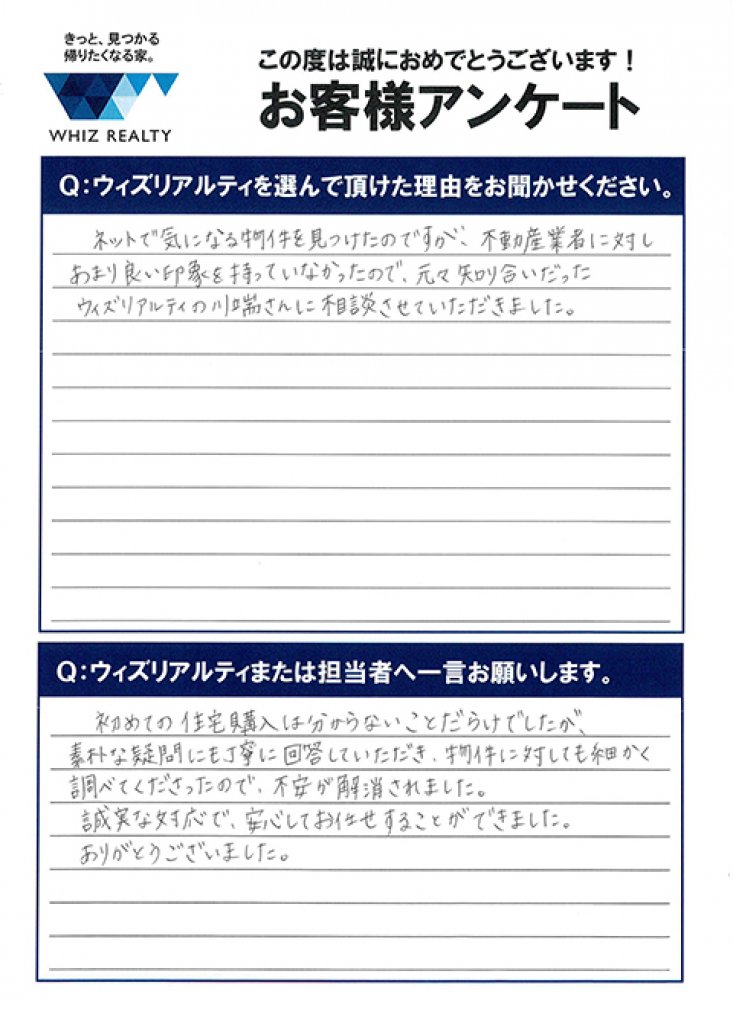 きっと、見つかる
帰りたくなる家。
WHIZ REALTY
この度は誠におめでとうございます！
お客様アンケート
Q：ウィズリアルティを選んで頂けた理由をお聞かせください。
ネットで気になる物件を見つけたのですが、不動産業者に対し
あまり良い印象を持っていなかったので、元々知り合いだった
ウィズリアルティの川端さんに相談させていただきました。
Q：ウィズリアルティまたは担当者へ一言お願いします。
初めての住宅購入は分からないことだらけでしたが、
素朴な疑問にも丁寧に回答していただき、物件に対しても細かく
調べてくださったので、不安が解消されました。
誠実な対応で、安心してお任せすることができました。
ありがとうございました。